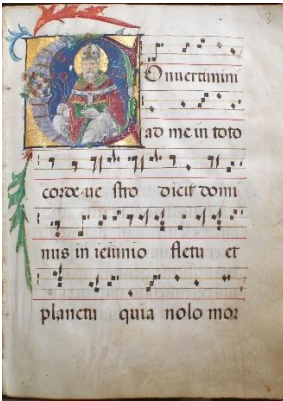 COnuertimini
ad me in toto
corde ue stro dicit domi
nus in ieiunio fletu et
planctu quia nolo mor